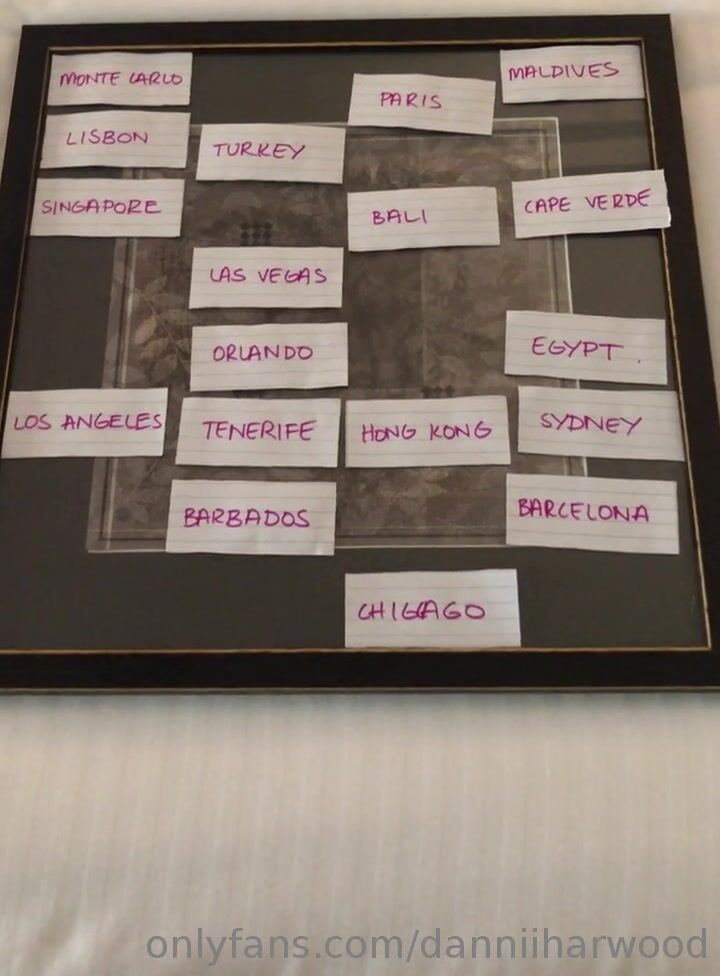 MONTE CARLO
PARIS
MALDIVES
LISBON
TURKEY
SINGAPORE
BALI
CAPE VERDE
LAS VEGAS
ORLANDO
EGYPT.
LOS ANGELES
TENERIFE
HONG KONG
SYDNEY
BARBADOS
BARCELONA
CHICAGO
onlyfans.com/danniiharwood